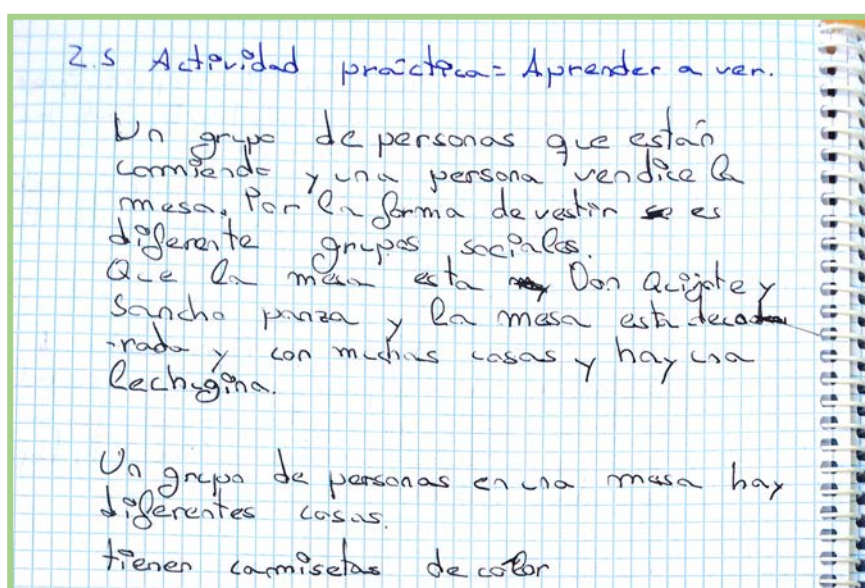 2.5 Actividad práctica= Aprender a ver.
Un grupo de personas que están
comiendo y una persona vendice la
mesa. Por la forma de vestir es
diferente grupos sociales.
Que la mesa esta Don Quijote y
Sancho panza y la mesa esta deco
-rada y con muchas cosas y hay una
lechugina.
Un grupo de personas en una mesa hay
diferentes cosas.
tienen camisetas de color